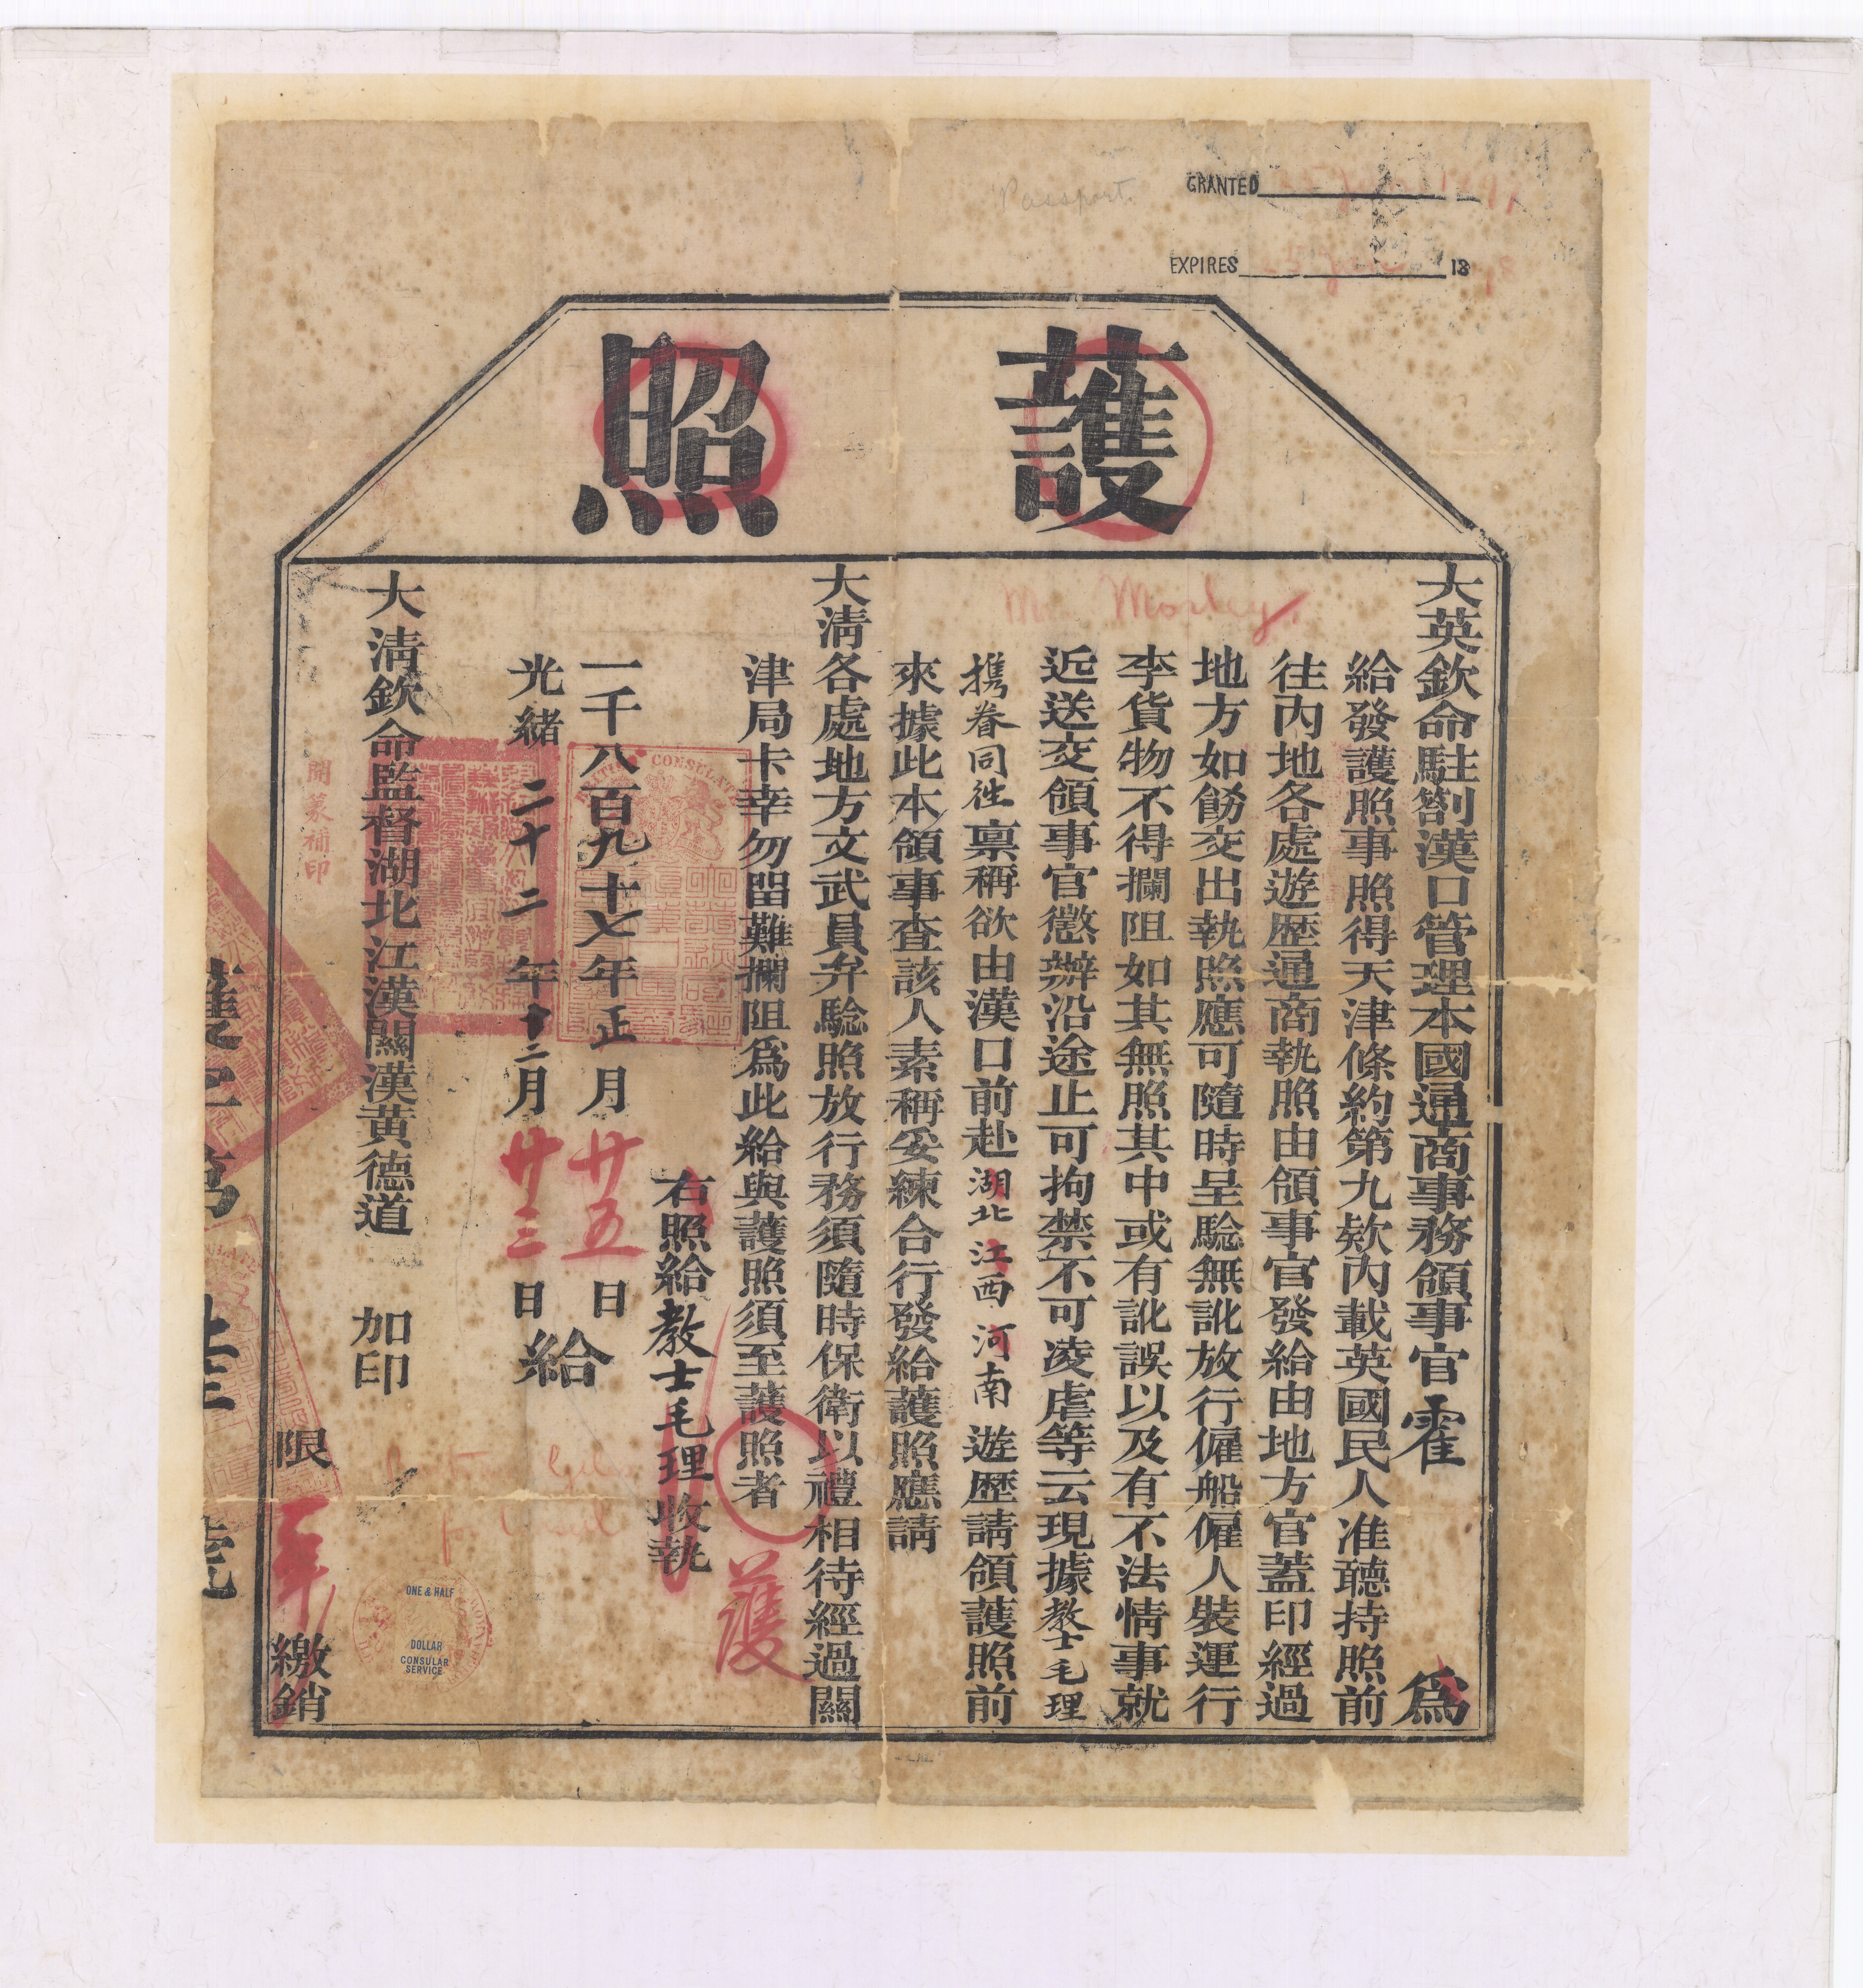 Passport.
GRANTED 25 Jan 1897
EXPIRES 25 Jan 1898
護照
Mr. Morley.
大英欽命駐劄漢口管理本國通商事務領事官霍 爲
給發護照事照得天津條約第九欵內載英國民人准聽持照前
往內地各處遊歷通商執照由領事官發給由地方官蓋印經過
地方如飭交出執照應可隨時呈騐無訛放行僱船僱人裝運行
李貨物不得攔阻如其無照其中或有訛誤以及有不法情事就
近送交領事官懲辦沿途止可拘禁不可凌虐等云現據教士毛理
攜眷同徃禀稱欲由漢口前赴湖北江西河南遊歷請領護照前
來據此本領事查該人素稱妥練合行發給護照應請
大淸各處地方文武員弁騐照放行務須隨時保衛以禮相待經過關
津局卡幸勿留難攔阻爲此給與護照須至護照者
護
右照給教士毛理收執
一千八百九十七年正月廿五日
光緒二十二年十二月廿三日
給
大淸欽命監督湖北江漢關漢黃德道 加印
開篆補印
限一年繳銷
BRITISH CONSULATE
ONE & HALF
DOLLAR
CONSULAR
SERVICE